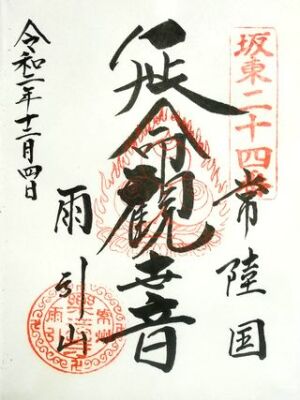 坂東二十四
常陸国
延命観世音
雨引山
令和二年十二月四日